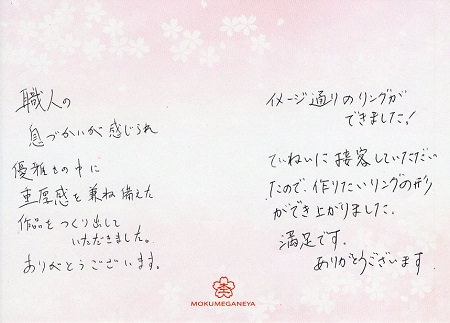 職人の
息づかいが感じられ
優雅さの中に
重厚感を兼ね備えた
作品をつくり出して
いただきました。
ありがとうございます。
イメージ通りのリングが
できました!
ていねいに接客していただい
たので、作りたいリングの形
ができ上がりました。
満足です。
ありがとうございます
MOKUMEGANEYA